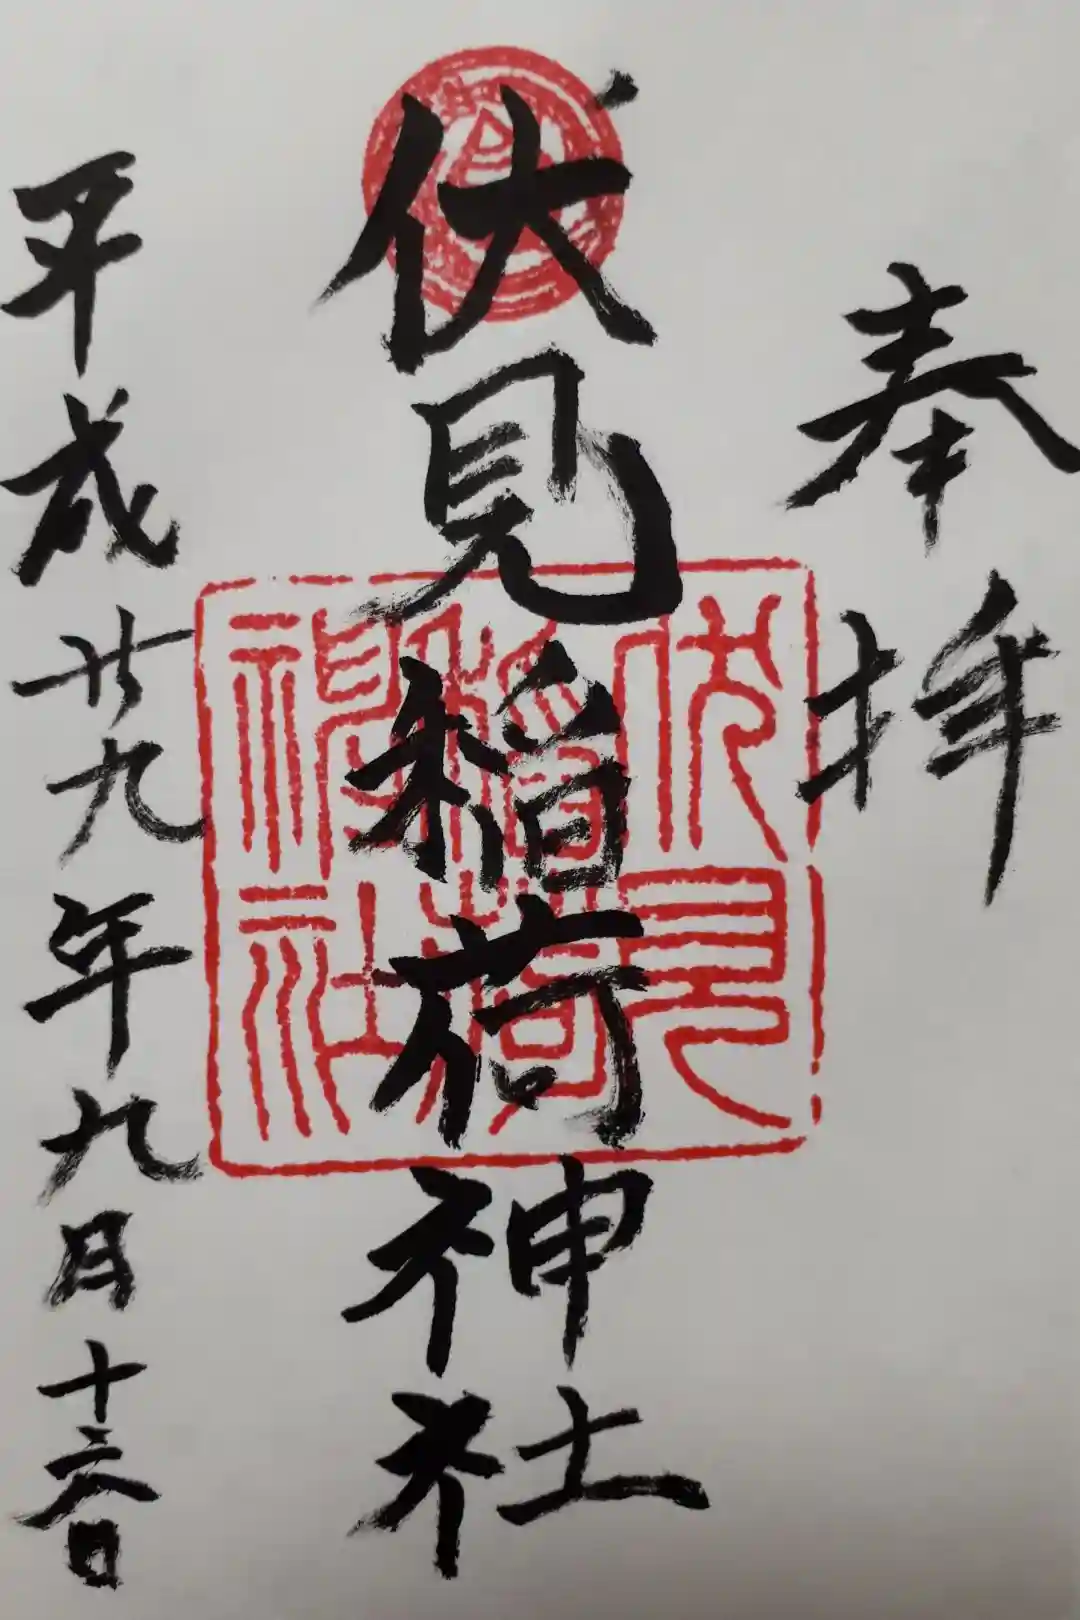 奉拝
伏見稲荷神社
平成廿九年九月十六日
伏見
稲荷
神社